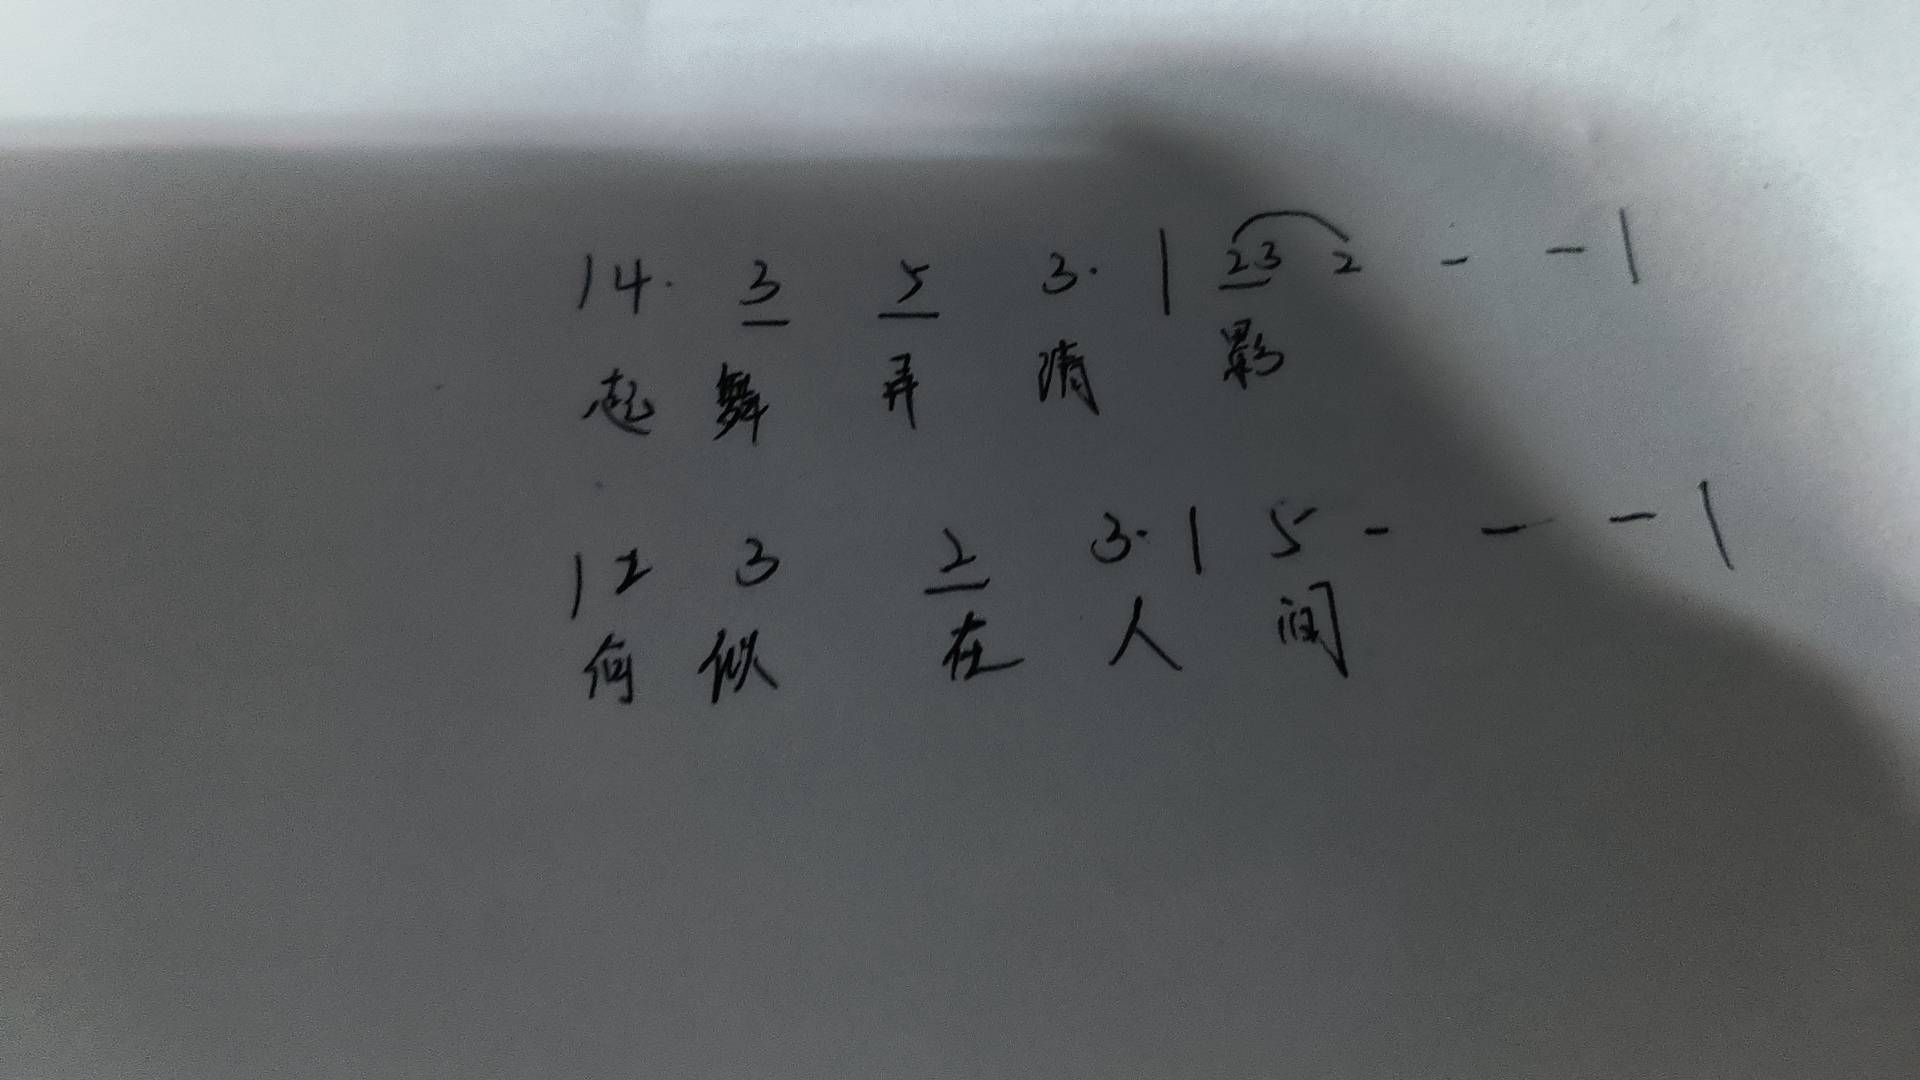 |4· 3 5 3· | 23 2 - - |
起 舞 弄 清 影
|2 3 2 3· | 5 - - - |
何 似 在 人 间